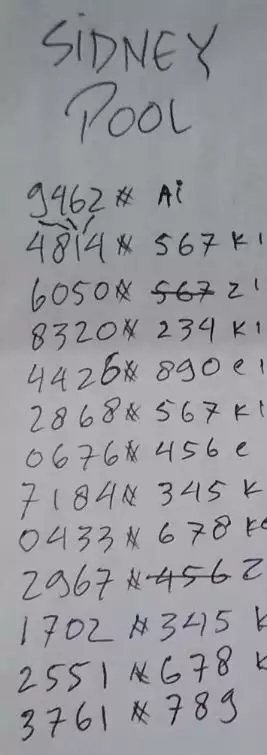 SIDNEY
POOL
9462 * Ai
4814 * 567 K1
6050 * ~~567~~ 21
8320 * 234 K1
4426 * 890 e1
2868 * 567 K1
0676 * 456 e
7184 * 345 K
0433 * 678 Ke
2967 * ~~456~~ 2
1702 * 345 K
2551 * 678 K
3761 * 789